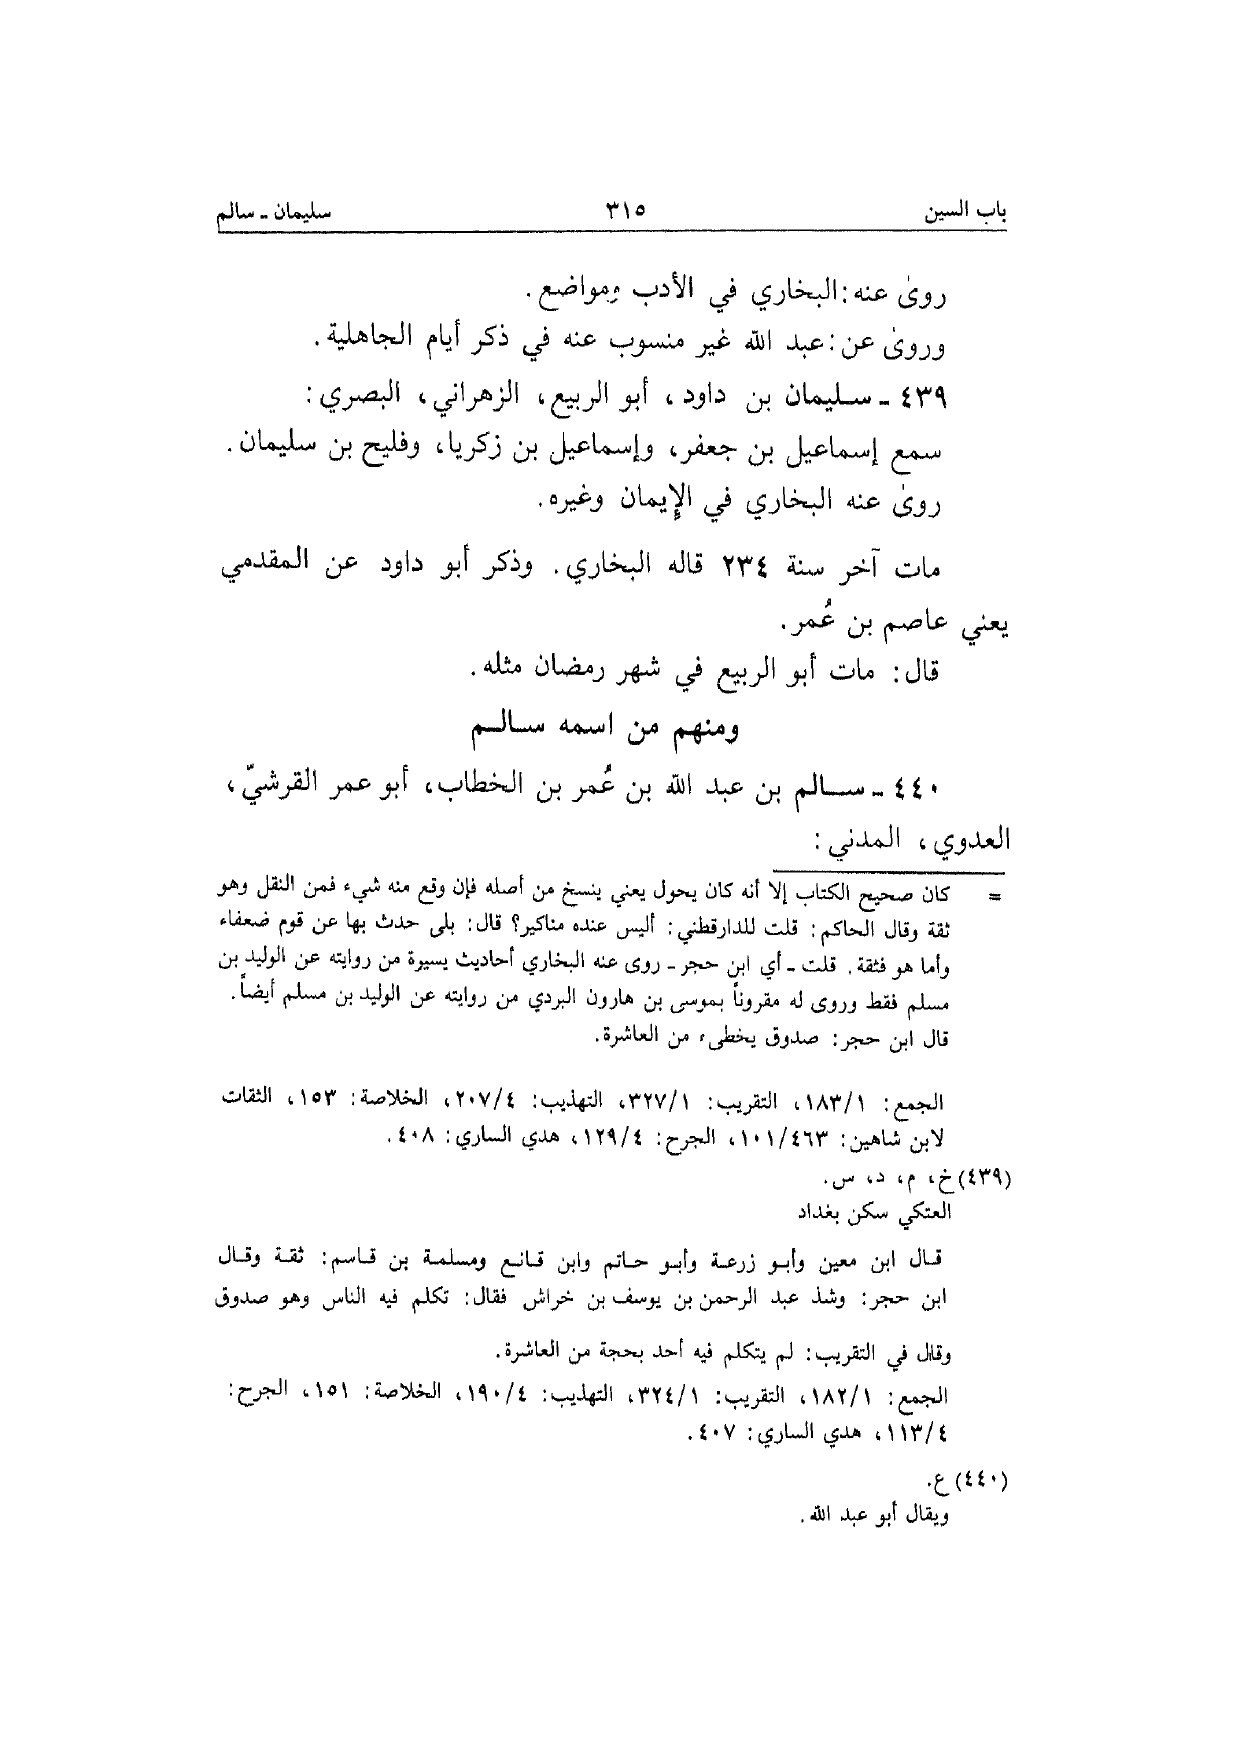 باب السين ٣١٥ سليمان ـ سالم
روىٰ عنه: البخاري في الأدب ومواضع.
وروىٰ عن: عبد الله غير منسوب عنه في ذكر أيام الجاهلية.
٤٣٩ ـ سليمان بن داود، أبو الربيع، الزهراني، البصري:
سمع إسماعيل بن جعفر، وإسماعيل بن زكريا، وفليح بن سليمان.
روىٰ عنه البخاري في الإيمان وغيره.
مات آخر سنة ٢٣٤ قاله البخاري. وذكر أبو داود عن المقدمي
يعني عاصم بن عُمر.
قال: مات أبو الربيع في شهر رمضان مثله.
ومنهم من اسمه سالم
٤٤٠ ـ سالم بن عبد الله بن عُمر بن الخطاب، أبو عمر القرشيّ،
العدوي، المدني:
= كان صحيح الكتاب إلا أنه كان يحول يعني ينسخ من أصله فإن وقع منه شيء فمن النقل وهو
ثقة وقال الحاكم: قلت للدارقطني: أليس عنده مناكير؟ قال: بلى حدث بها عن قوم ضعفاء
وأما هو فثقة. قلت ـ أي ابن حجر ـ روى عنه البخاري أحاديث يسيرة من روايته عن الوليد بن
مسلم فقط وروى له مقروناً بموسى بن هارون البردي من روايته عن الوليد بن مسلم أيضاً.
قال ابن حجر: صدوق يخطىء من العاشرة.
الجمع: ١/١٨٣، التقريب: ١/٣٢٧، التهذيب: ٤/٢٠٧، الخلاصة: ١٥٣، الثقات
لابن شاهين: ١٠١/٤٦٣، الجرح: ٤/١٢٩، هدي الساري: ٤٠٨.
(٤٣٩) خ، م، د، س.
العتكي سكن بغداد
قال ابن معين وأبو زرعة وأبو حاتم وابن قانع ومسلمة بن قاسم: ثقة وقال
ابن حجر: وشذ عبد الرحمن بن يوسف بن خراش فقال: تكلم فيه الناس وهو صدوق
وقال في التقريب: لم يتكلم فيه أحد بحجة من العاشرة.
الجمع: ١/١٨٢، التقريب: ١/٣٢٤، التهذيب: ٤/١٩٠، الخلاصة: ١٥١، الجرح:
٤/١١٣، هدي الساري: ٤٠٧.
(٤٤٠) ع.
ويقال أبو عبد الله.